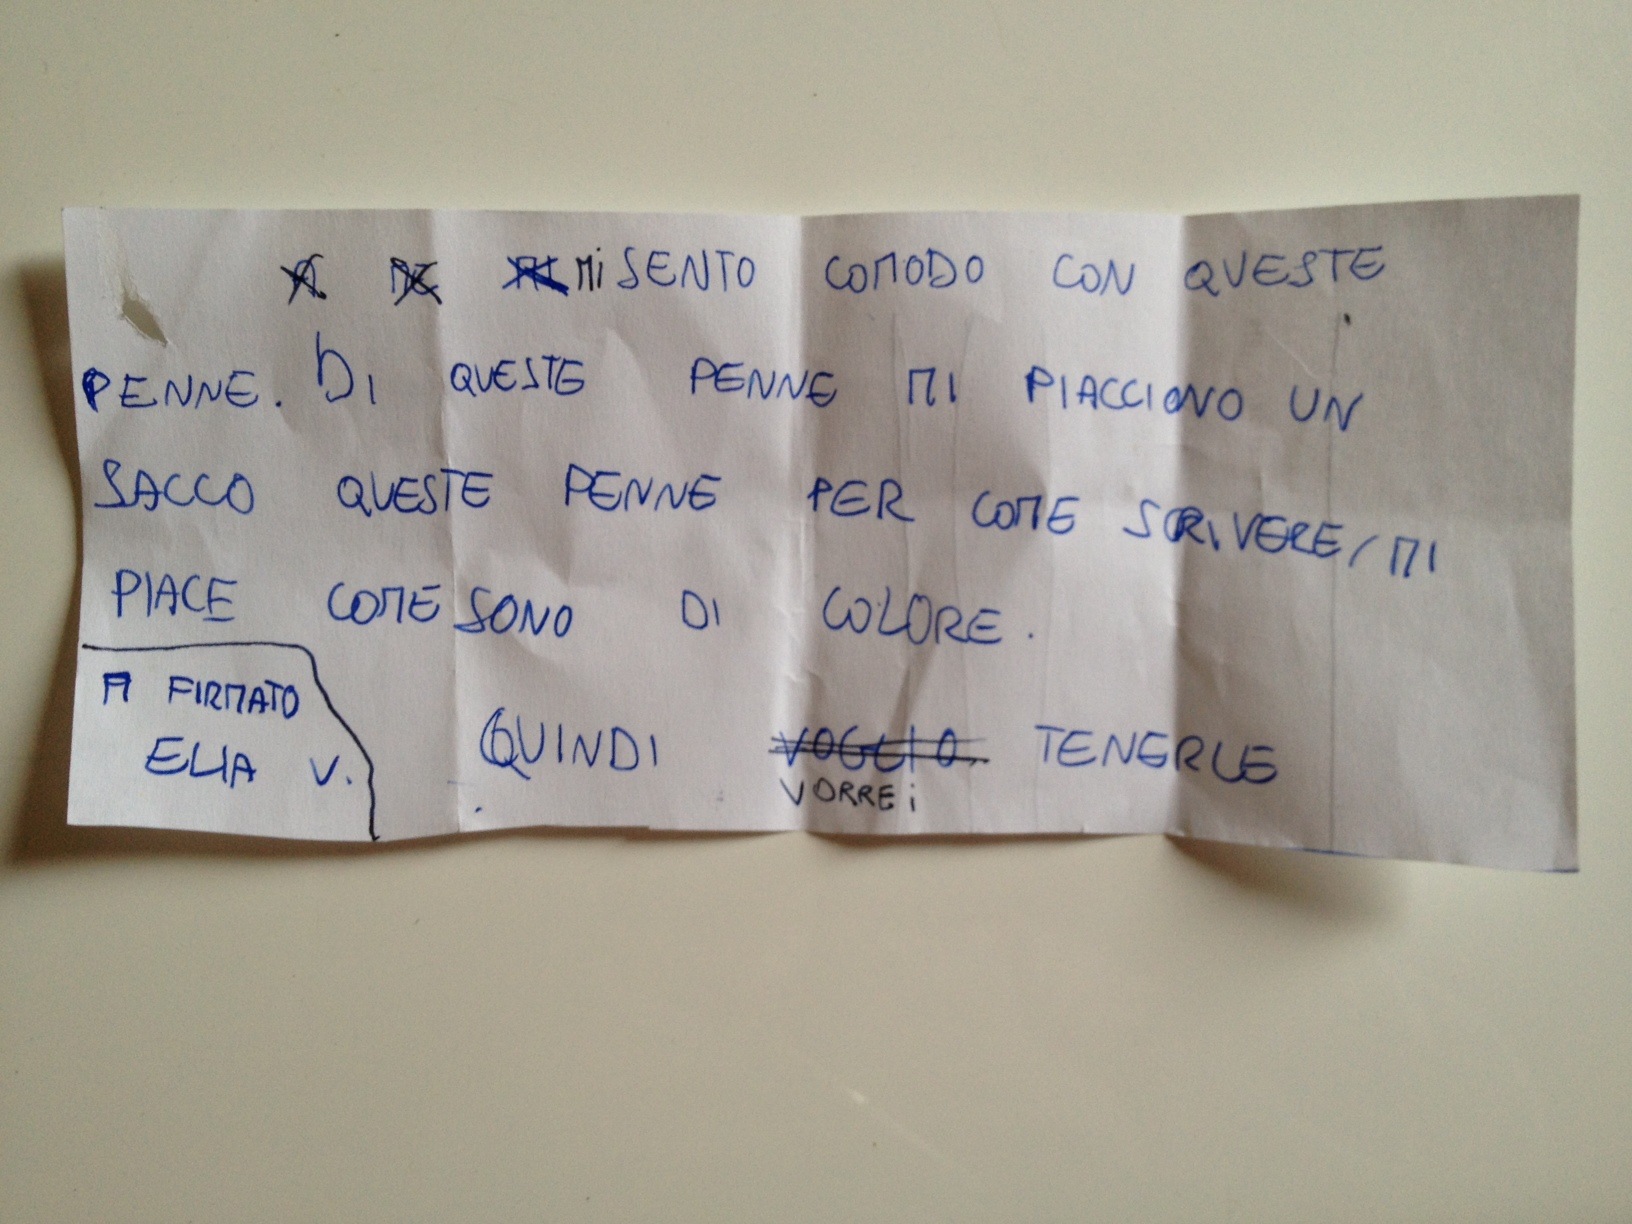 A ME MI Mi SENTO COMODO CON QUESTE
PENNE. DI QUESTE PENNE MI PIACCIONO UN
SACCO QUESTE PENNE PER COME SCRIVERE, MI
PIACE COME SONO DI COLORE.
QUINDI VOGLIO TENERLE
VORREi
A FIRMATO
ELIA V.